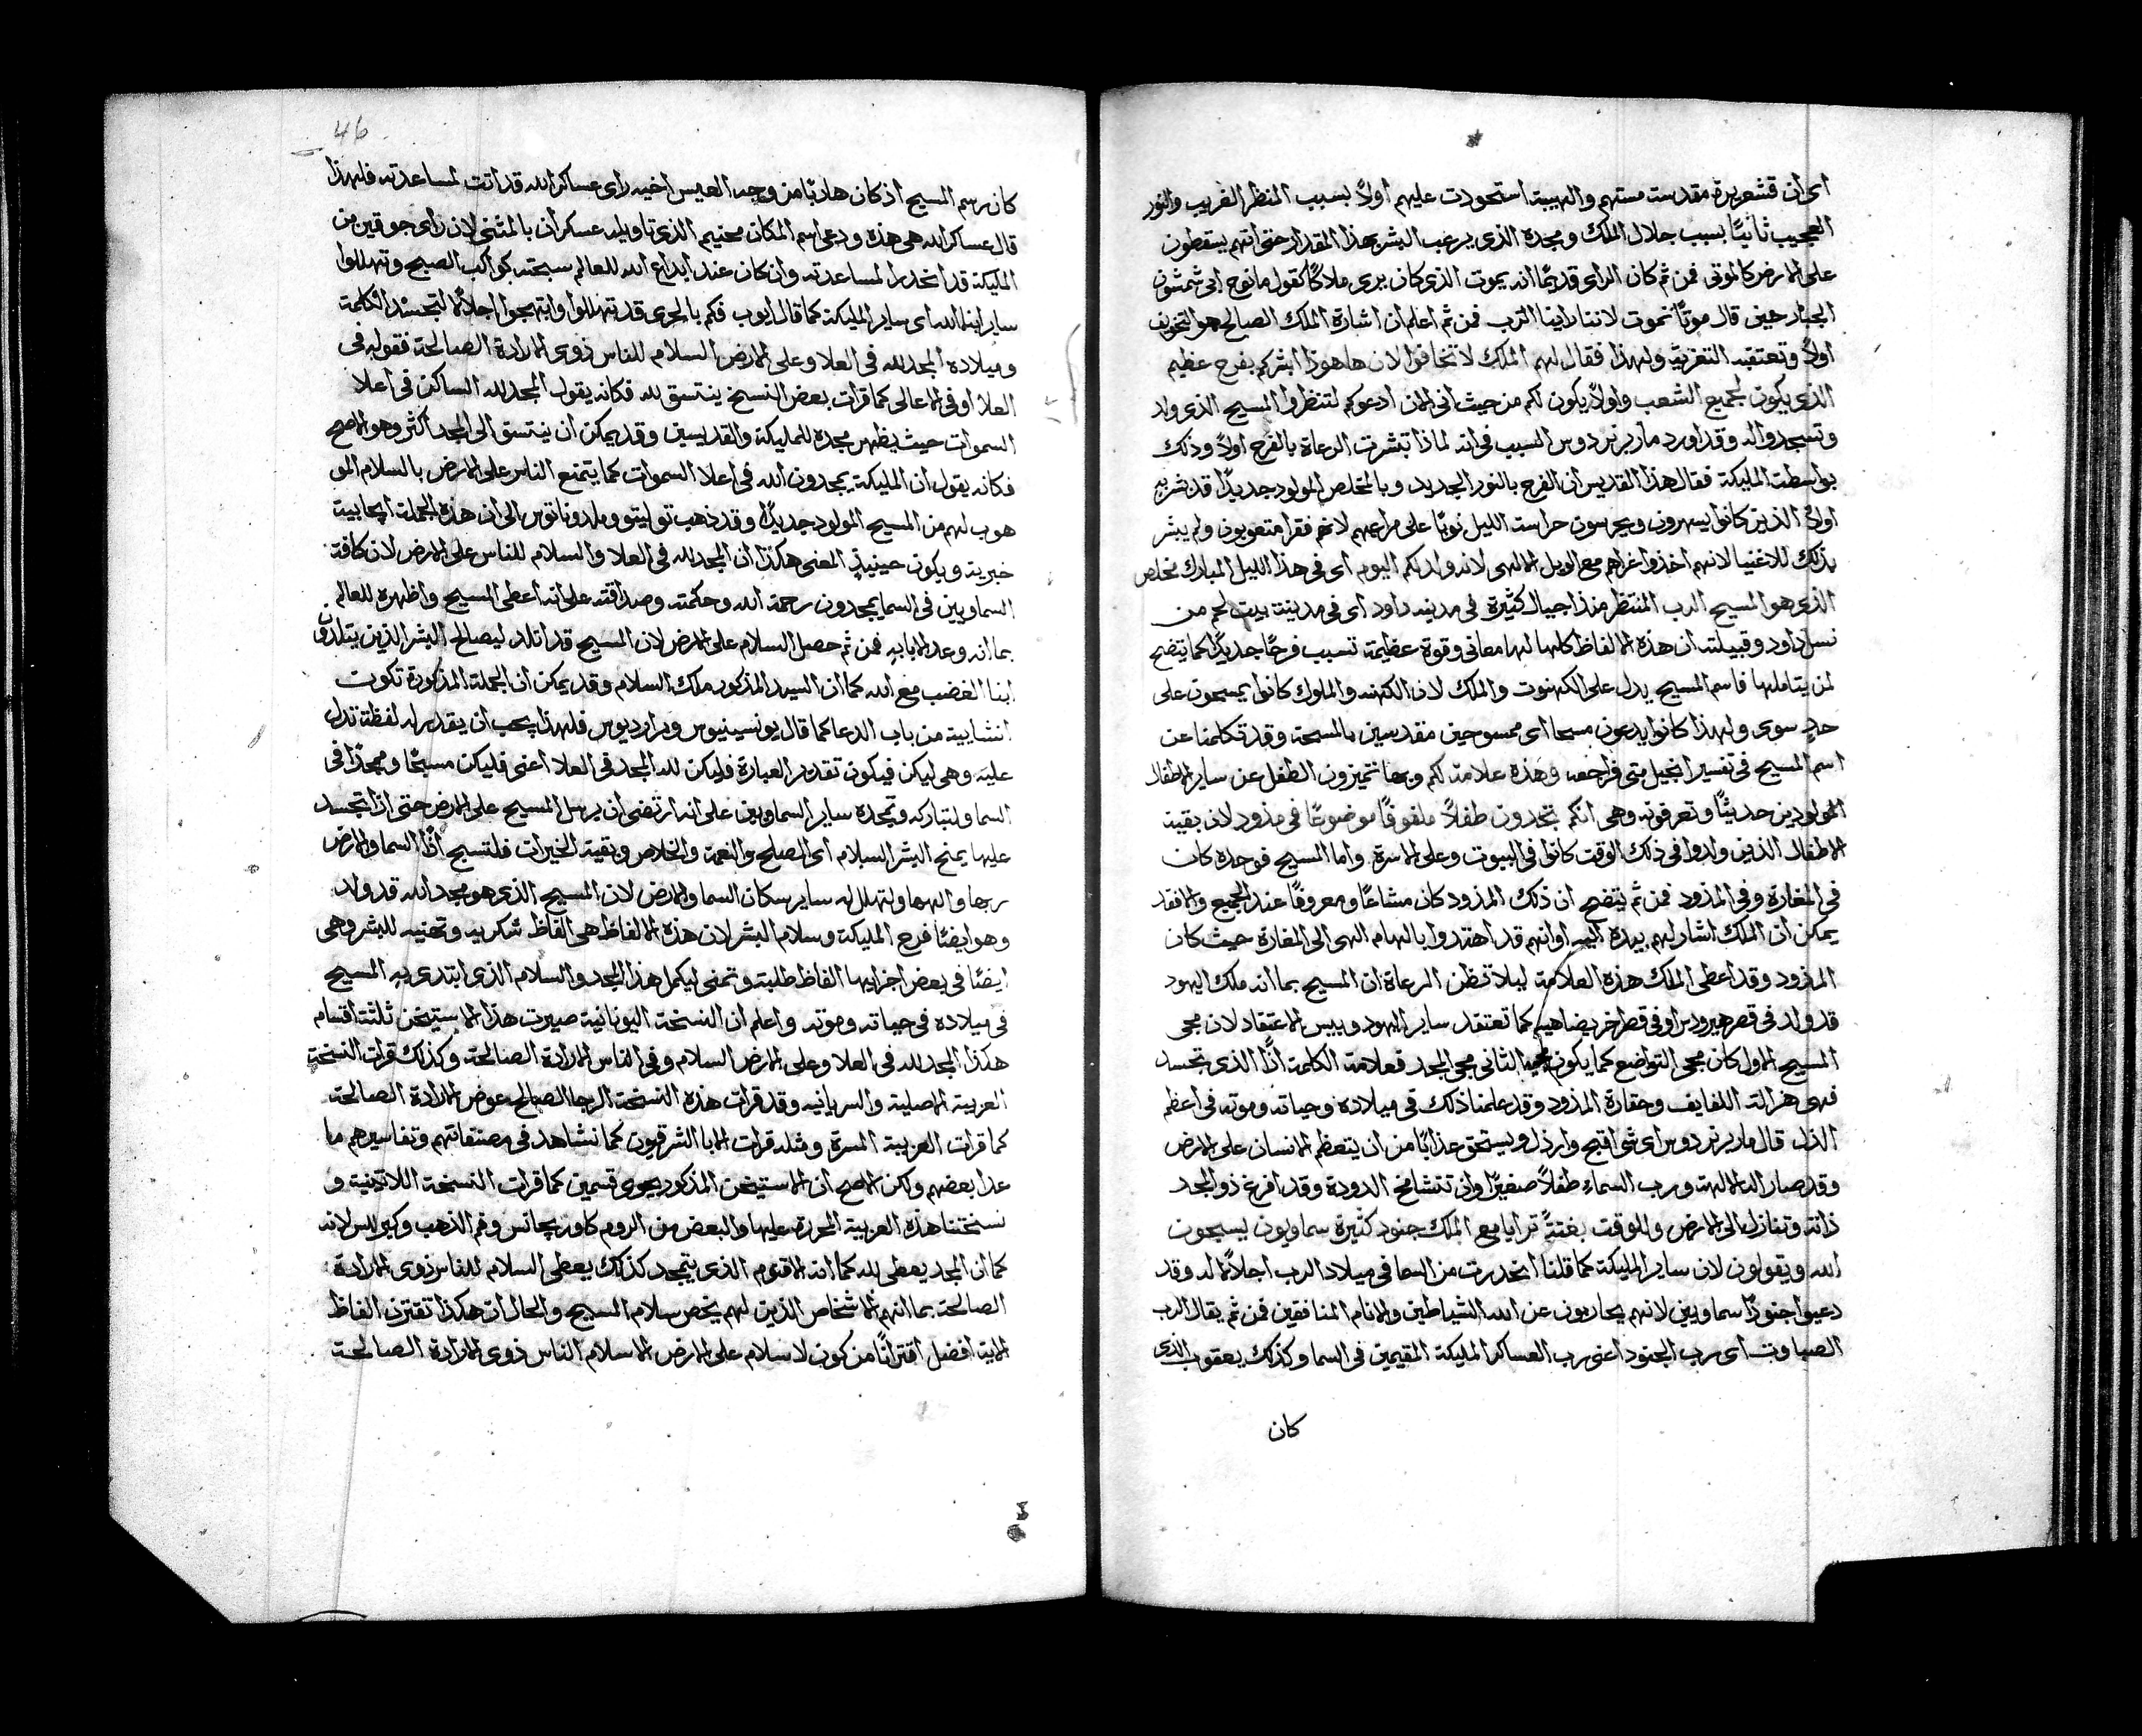 اى ان قشعريرة مقدسة مستهم والهيبة استحودت عليهم اولاً بسبب المنظر الغريب والنور
العجيب ثانيًا بسبب جلال الملك ومجده الذى يرعب البشر بهذا المقدار حتى انهم يسقطون
على الارض كالموتى فمن ثم كان الراى قديمًا انه يموت الذى كان يرى ملاكًا كقول مانوح ابى شمشون
الجبار حين قال موتًا نموت لاننا راينا الرب فمن ثم اعلم ان اشارة الملك الصالح هو التخويف
اولاً وتعتقبه التعزية ولهذا فقال لهم الملك لا تخافوا لان هاهوذا ابشركم بفرح عظيم
الذى يكون لجميع الشعب واولاً يكون لكم من حيث انى الان ادعوكم لتنظروا المسيح الذى ولد
وتسجدوا له وقد اورد مار برنردوس السبب فى انه لماذا تبشرت الرعاة بالفرح اولاً وذلك
بواسطة المليكة فقال هذا القديس ان الفرح بالنور الجديد وبالمخلص المولود جديدًا قد بشر به
اولاً الذين كانوا يسهرون ويحرسون حراسة الليل نوبًا على مراعيهم لانهم فقرا متعوبون ولم يبشر
بذلك للاغنيا لانهم اخذوا عزاهم مع الويل الالهى لانه ولد لكم اليوم اى فى هذا الليل المبارك مخلص
الذى هو المسيح الرب المنتظر منذ اجيال كثيرة فى مدينة داود اى فى مدينة بيت لحم من
نسل داود وقبيلته ان هذه الالفاظ كلها لها معانى وقوة عظيمة تسبب فرحًا جديدًا كما يتضح
لمن يتاملها فاسم المسيح يدل على الكهنوت والملك لان الكهنه والملوك كانوا يمسحون على
حدٍ سوى ولهذا كانوا يدعون مسحا اى ممسوحين مقدسين بالمسحة وقد تكلمنا عن
اسم المسيح فى تفسير انجيل متى فراجعه وهذه علامة لكم وبها تتميزون الطفل عن ساير الاطفال
المولودين حديثًا وتعرفونه وهى انكم تجدون طفلاً ملفوفًا موضوعًا فى مذود لان بقية
الاطفال الذين ولدوا فى ذلك الوقت كانوا فى البيوت وعلى الاسرة واما المسيح فوحده كان
فى المغارة وفى المذود فمن ثم يتضح ان ذلك المذود كان مشاعًا ومعروفًا عند الجميع والا فقد
يمكن ان الملك اشار لهم بيده اليه او انهم قد اهتدوا بالهام الهى الى المغارة حيث كان
المذود وقد اعطى الملك هذه العلامة ليلا تظن الرعاة ان المسيح بما انه ملك اليهود
قد ولد فى قصر هيرودس او فى قصر اخر يضاهيه كما تعتقد ساير اليهود وبيس الاعتقاد لان مجى
المسيح الاول كان مجى التواضع كما يكون مجيه الثانى مجى المجد فعلامة الكلمة اذًا الذى تجسد
فهى هزالة اللفايف وحقارة المذود وقد علمنا ذلك فى ميلاده وحياته وموته فى اعظم
الذل قال مار برنردوس اى شى اقبح وارذل ويستحق عذابًا من ان يتعظم الانسان على الارض
وقد صار اله الالهة ورب السماء طفلاً صغيرًا وان تتشامخ الدودة وقد افرغ ذو المجد
ذاته وتنازل الى الارض وللوقت بغتةً ترايا مع الملك جنود كثيرة سماويون يسبحون
الله ويقولون لان ساير المليكة كما قلنا انحدرت من السما فى ميلاد الرب اجلالاً له وقد
دعيوا جنودًا سماويين لانهم يحاربون عن الله الشياطين والانام المنافقين فمن ثم يقال الرب
الصباوت اى رب الجنود اعنى رب العساكر المليكة المقيمين فى السما وكذلك يعقوب الذى
كان
46
كان رسم المسيح اذ كان هاربًا من وجه العيس اخيه راى عساكر الله قد اتت لمساعدته فلهذا
قال عساكر الله هى هذه ودعى اسم المكان محنيم الذى تاويله عسكران بالمثنى لان راى جوقين من
المليكة قد انحدرا لمساعدته وان كان عند ابداع الله للعالم سبحته كواكب الصبح وتهللوا
ساير ابنا الله اى ساير المليكة كما قال ايوب فكم بالحرى قد تهللوا وابتهجوا اجلالاً لتجسد الكلمة
وميلاده المجد لله فى العلا وعلى الارض السلام للناس ذوى الارادة الصالحة فقوله فى
العلا او فى الاعالى كما قرات بعض النسخ ينتسق لله فكانه يقول المجد لله الساكن فى اعلا
السموات حيث يظهر مجده للمليكة والقديسين وقد يمكن ان ينتسق الى المجد اكثر وهو الاصح
فكانه يقول ان المليكة يمجدون الله فى اعلا السموات كما يتمتع الناس على الارض بالسلام المو
هوب لهم من المسيح المولود جديدًا وقد ذهب توليتو وملدوناتوس الى ان هذه الجملة ايجابية
خبرية ويكون حينيذٍ المعنى هكذا ان المجد لله فى العلا والسلام للناس على الارض لان كافة
السماويين فى السما يمجدون رحمة الله وحكمته وصداقته على انه اعطى المسيح واظهره للعالم
بما انه وعد الابا به فمن ثم حصل السلام على الارض لان المسيح قد اتلد ليصالح البشر الذين يتلدون
ابنا الغضب مع الله كما ان السيد المذكور ملك السلام وقد يمكن ان الجملة المذكورة تكون
انشايية من باب الدعا كما قال يونسينيوس وبراديوس فلهذا يجب ان يقدر له لفظة تدل
عليه وهى ليكن فيكون تقدير العبارة فليكن لله المجد فى العلا اعنى فليكن مسبحًا وممجدًا فى
السما ولتباركه وتمجده ساير السماويين على انه ارتضى ان يرسل المسيح على الارض حتى اذا تجسد
عليها يمنح البشر السلام اى الصلح والنعمة والخلاص وبقية الخيرات فلتسبح اذًا السما والارض
ربها والهها ولتهلل له ساير سكان السما والارض لان المسيح الذى هو مجد الله قد ولد
وهو ايضًا فرح المليكة وسلام البشر لان هذه الالفاظ هى الفاظ شكريه وتهنيه للبشر وهى
ايضًا فى بعض اجزايها الفاظ طلبة وتمنى ليكمل هذا المجد والسلام الذى ابتدى به المسيح
فى ميلاده فى حياته وموته واعلم ان النسخة اليونانية صيرت هذا الاستيخن ثلثة اقسام
هكذا المجد لله فى العلا وعلى الارض السلام وفى الناس الارادة الصالحة وكذلك قرات النسخة
العربية الاصلية والسريانيه وقد قرات هذه النسخة الرجا الصالح عوض الارادة الصالحة
كما قرات العربية المسرة ومثله قرات الابا الشرقيون كما نشاهد فى مصنفاتهم وتفاسيرهم ما
عدا بعضهم ولكن الاصح ان الاستيخن المذكور يحوى قسمين كما قرات النسخة اللاتينية و
نسختنا هذه العربية المحررة عليها والبعض من الروم كاوريجانس وفم الذهب وكيرللس لانه
كما ان المجد يعطى لله كما انه الاقنوم الذى يتمجد كذلك يعطى السلام للناس ذوى الارادة
الصالحة بما انهم الاشخاص الذين لهم يخص سلام المسيح والحال ان هكذا تقترن الفاظ
الاية افضل اقترانًا من كون لا سلام على الارض الا سلام الناس ذوى الارادة الصالحة